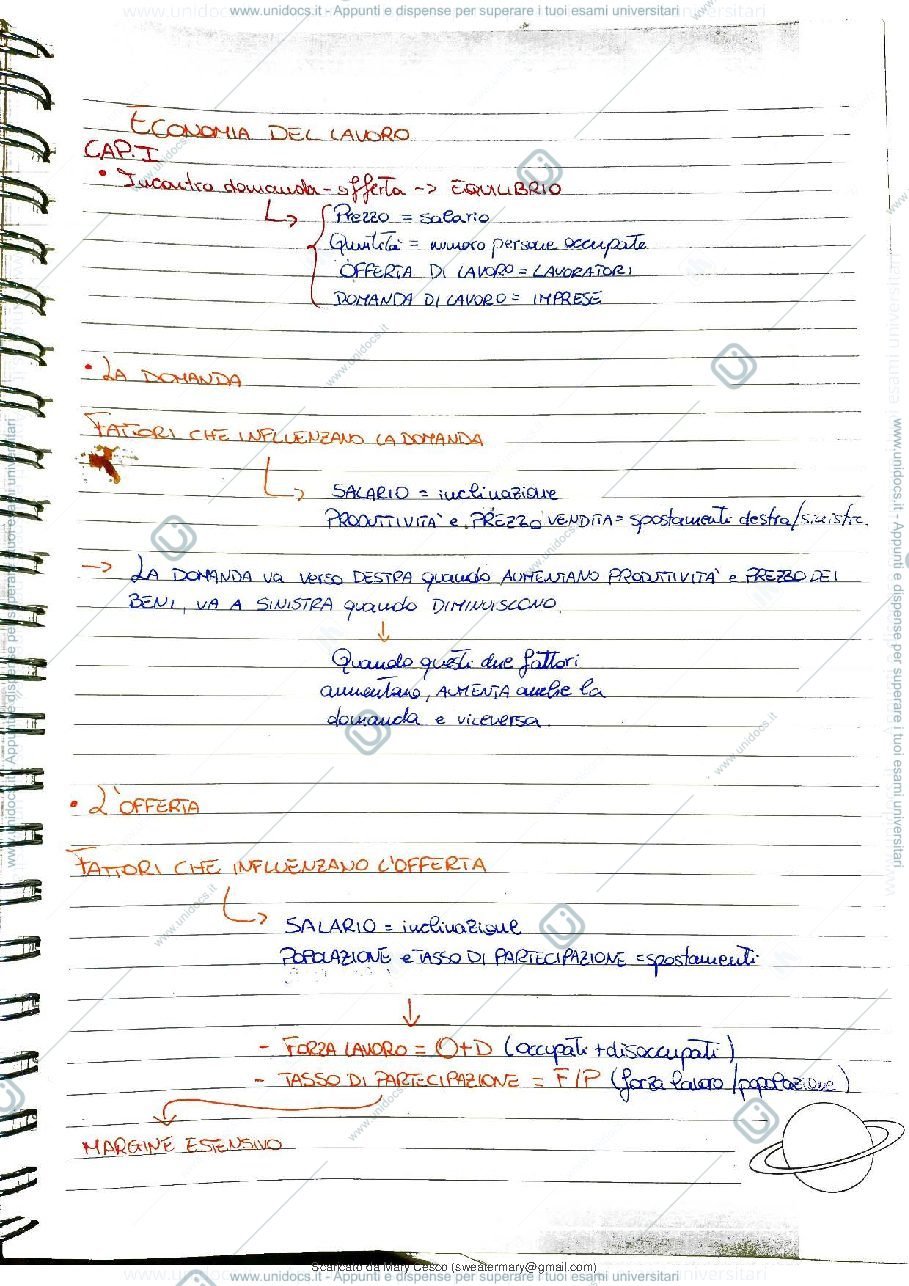 www.unidocs.it - Appunti e dispense per superare i tuoi esami universitari
ECONOMIA DEL LAVORO
CAP. I
• Incontro domanda - offerta -> EQUILIBRIO
Prezzo = salario
Quantità = numero persone occupate
OFFERTA DI LAVORO = LAVORATORI
DOMANDA DI LAVORO = IMPRESE
• LA DOMANDA
FATTORI CHE INFLUENZANO LA DOMANDA
SALARIO = inclinazione
PRODUTTIVITA' e PREZZO VENDITA = spostamenti destra/sinistra.
-> LA DOMANDA va verso DESTRA quando AUMENTANO PRODUTTIVITA' e PREZZO DEI
BENI, VA A SINISTRA quando DIMINUISCONO.
Quando questi due fattori
aumentano, AUMENTA anche la
domanda e viceversa.
• L'OFFERTA
FATTORI CHE INFLUENZANO L'OFFERTA
SALARIO = inclinazione
POPOLAZIONE e TASSO DI PARTECIPAZIONE = spostamenti
- FORZA LAVORO = O+D (occupati + disoccupati)
- TASSO DI PARTECIPAZIONE = F/P (forza lavoro/popolazione)
MARGINE ESTENSIVO
Scaricato da Mary Cesco (sweatermary@gmail.com)
www.unidocs.it - Appunti e dispense per superare i tuoi esami universitari